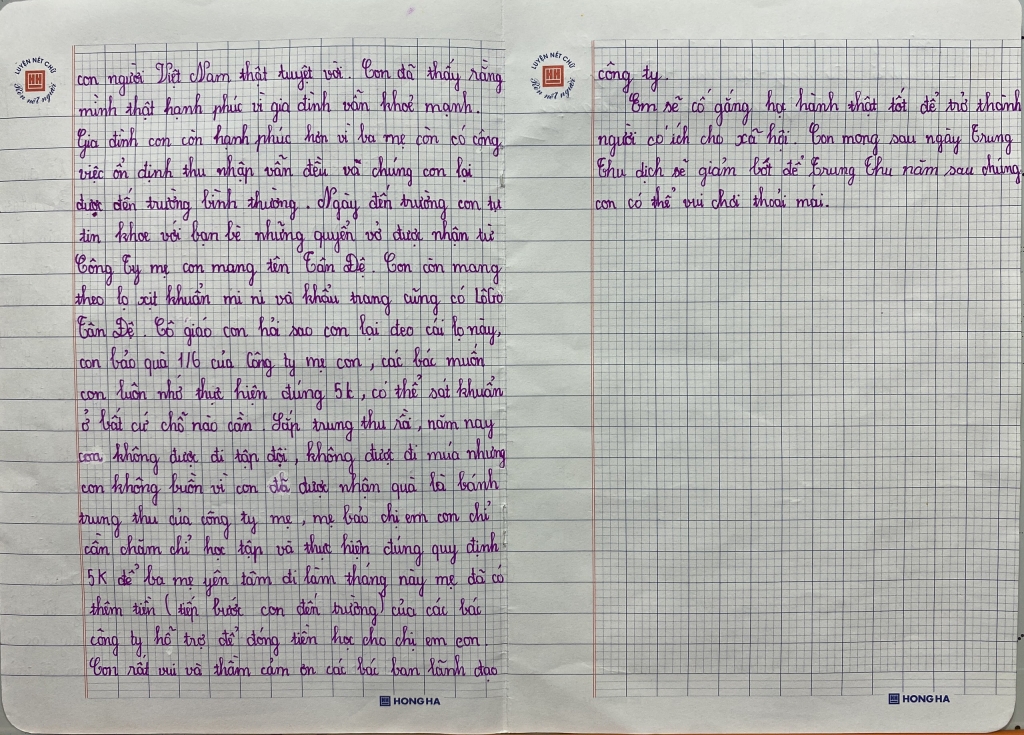 LUYỆN NÉT CHỮ
HH
Rèn nết người
con người Việt Nam thật tuyệt vời. Con đã thấy rằng
mình thật hạnh phúc vì gia đình vẫn khoẻ mạnh.
Gia đình con còn hạnh phúc hơn vì ba mẹ còn có công
việc ổn định thu nhập vẫn đều và chúng con lại
được đến trường bình thường. Ngày đến trường con tự
tin khoe với bạn bè những quyển vở được nhận từ
Công Ty mẹ con mang tên Tân Đệ. Con còn mang
theo lọ xịt khuẩn mi ni và khẩu trang cũng có LôGô
Tân Đệ. Cô giáo con hỏi sao con lại đeo cái lọ này,
con bảo quà 1/6 của Công ty mẹ con, các bác muốn
con luôn nhớ thực hiện đúng 5k, có thể sát khuẩn
ở bất cứ chỗ nào cần. Sắp trung thu rồi, năm nay
con không được đi tập đội, không được đi múa nhưng
con không buồn vì con đã được nhận quà là bánh
trung thu của công ty mẹ, mẹ bảo chị em con chỉ
cần chăm chỉ học tập và thực hiện đúng quy định
5K để ba mẹ yên tâm đi làm tháng này mẹ đã có
thêm tiền (tiếp bước con đến trường) của các bác
công ty hỗ trợ để đóng tiền học cho chị em con.
Con rất vui và thầm cảm ơn các bác ban lãnh đạo
HONG HA
LUYỆN NÉT CHỮ
HH
Rèn nết người
công ty.
Em sẽ cố gắng học hành thật tốt để trở thành
người có ích cho xã hội. Con mong sau ngày Trung
Thu dich sẽ giảm bớt để Trung Thu năm sau chúng
con có thể vui chơi thoải mái.
HONG HA